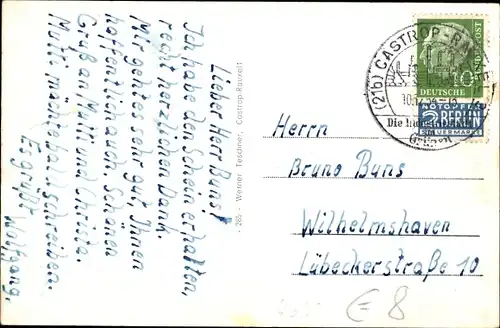 Lieber Herr Buns!
Ich habe den Schein erhalten,
recht herzlichen Dank.
Mir geht es sehr gut, Ihnen
hoffentlich auch. Schönen
Gruß an Mutti und Christa.
Mutti möchte bald schreiben.
Es grüßt Wolfgang.
285 - Werner Teschner, Castrop-Rauxel
(21b) CASTROP-RAUXEL
10.12.54
Die Industriestadt
im
Grünen
10
DEUTSCHE
BUNDESPOST
NOTOPFER
2 BERLIN
STEUERMARKE
Herrn
Bruno Buns
Wilhelmshaven
Lübeckerstraße 10
€ 8